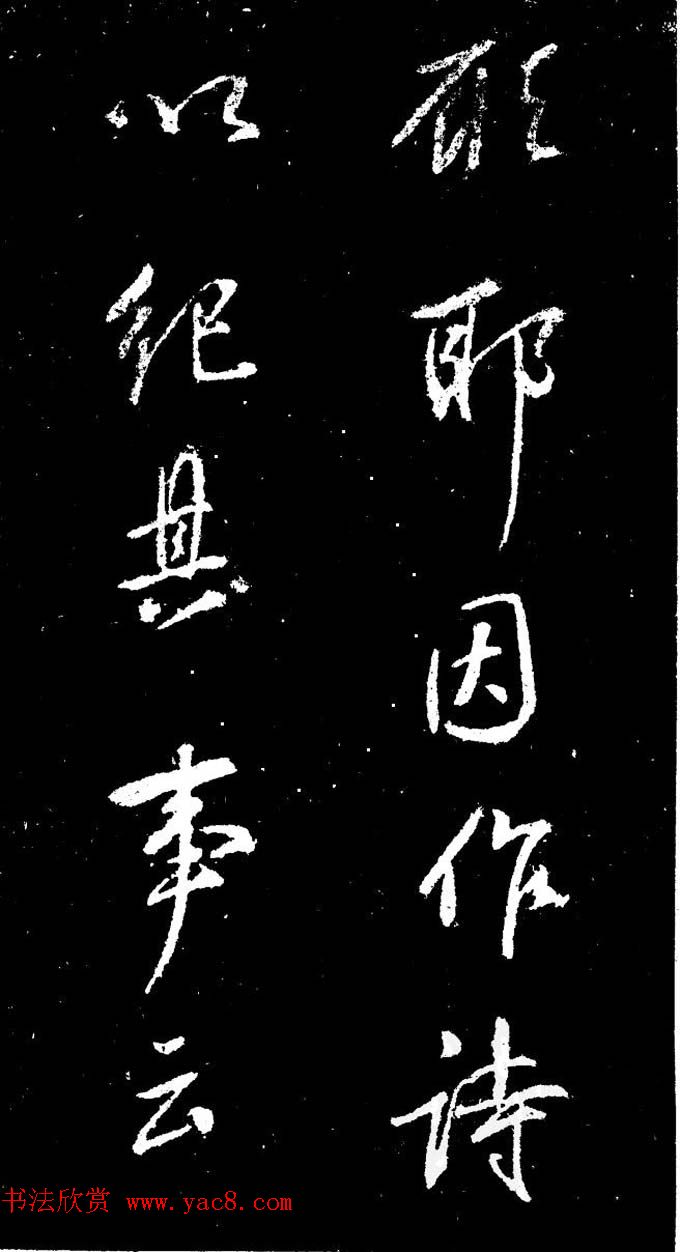 願耶因作詩
以紀其事云
书法欣赏 www.yac8.com